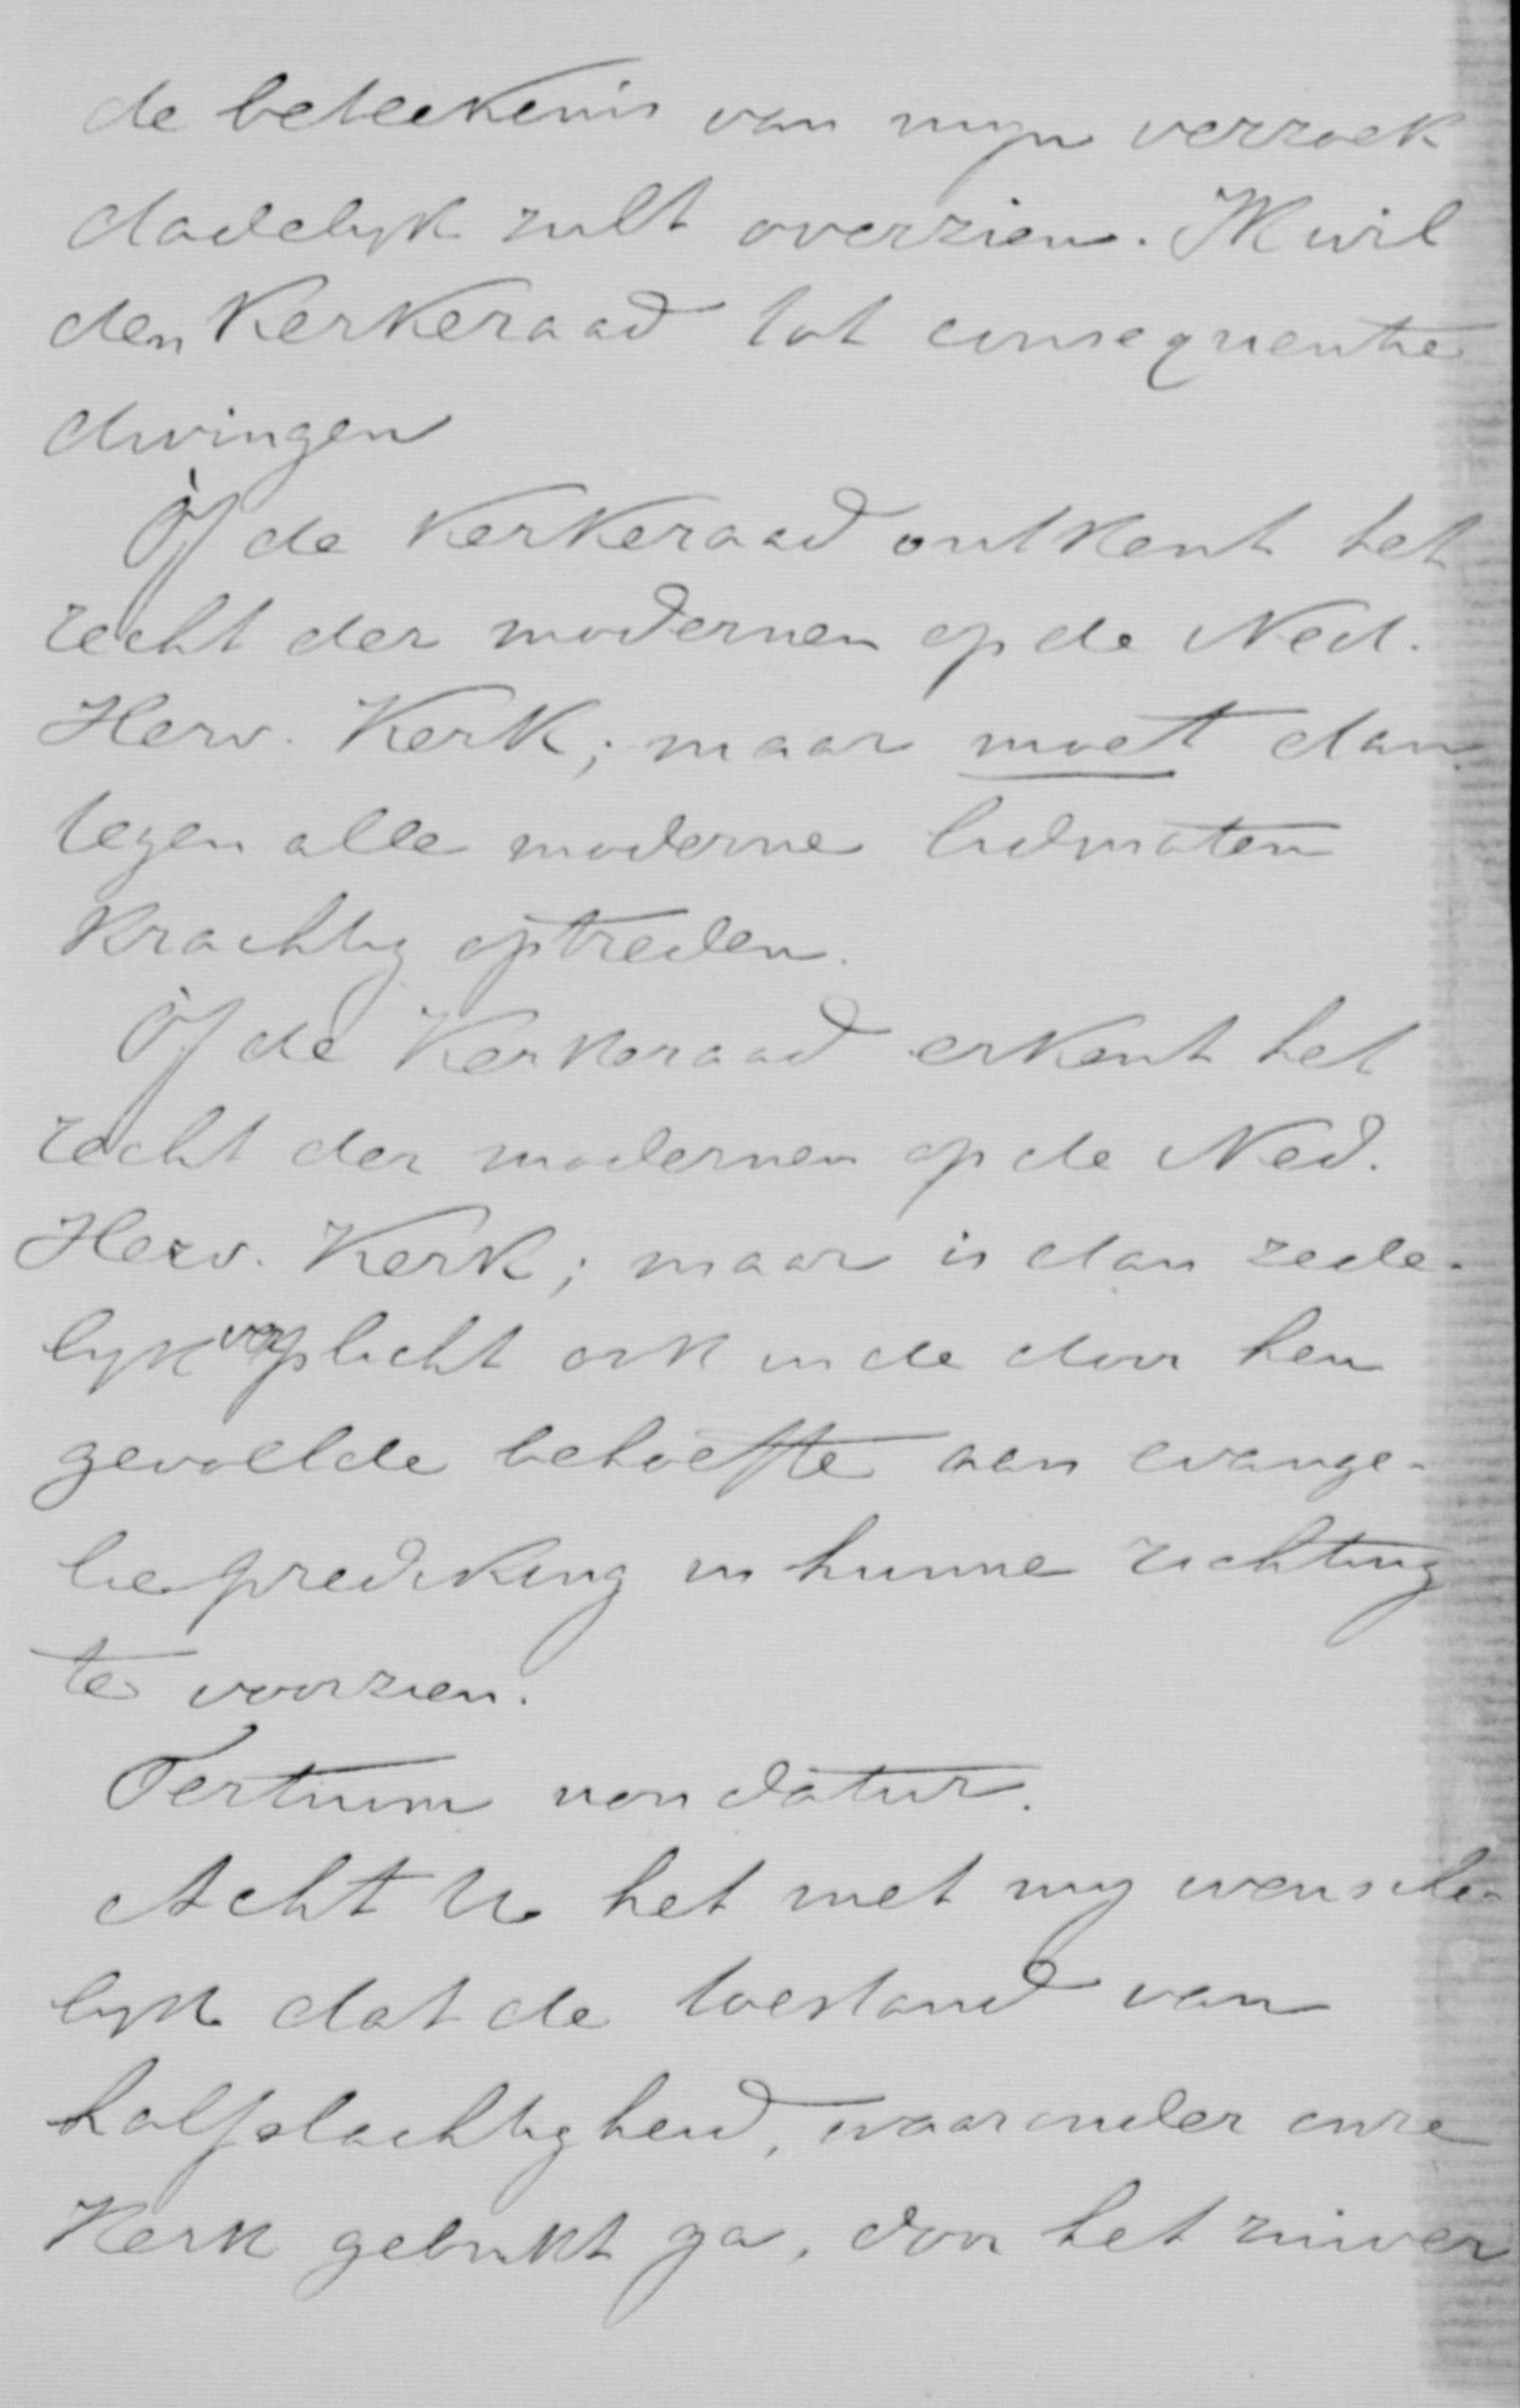 de beteekenis van myn verzoek
dadelyk zult overzien. Ik wil
den Kerkeraad tot consequentie
dwingen
Òf de Kerkeraad ontkent het
recht der modernen op de Ned.
Herv. Kerk; maar moet dan
tegen alle moderne lidmaten
krachtig optreden.
Òf de Kerkeraad erkent het
recht der modernen op de Ned.
Herv. Kerk; maar is dan zede-
lyk verplicht ook in de door hen
gevoelde behoefte aan evange-
lieprediking in hunne richting
te voorzien.
Tertium non datur.
Acht U het met my wensche-
lyk dat de toestand van
halfslachtigheid, waaronder onze
Kerk gebukt ga, door het zuiver